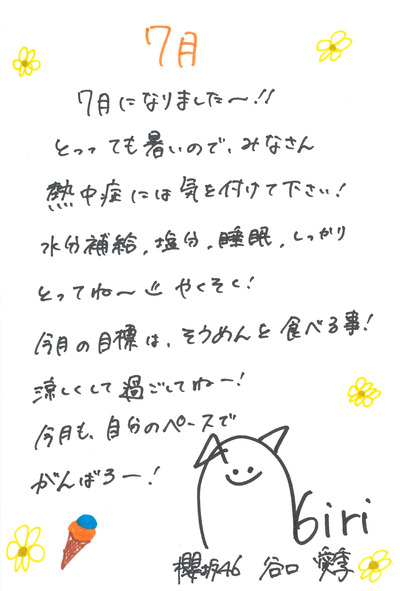 7月
7月になりました〜!!
とっっても暑いので、みなさん
熱中症には気を付けて下さい!
水分補給、塩分、睡眠、しっかり
とってね〜 やくそく!
今月の目標は、そうめんを食べる事!
涼しくして過ごしてねー!
今月も、自分のペースで
がんばろー!
airi
櫻坂46 谷口 愛季